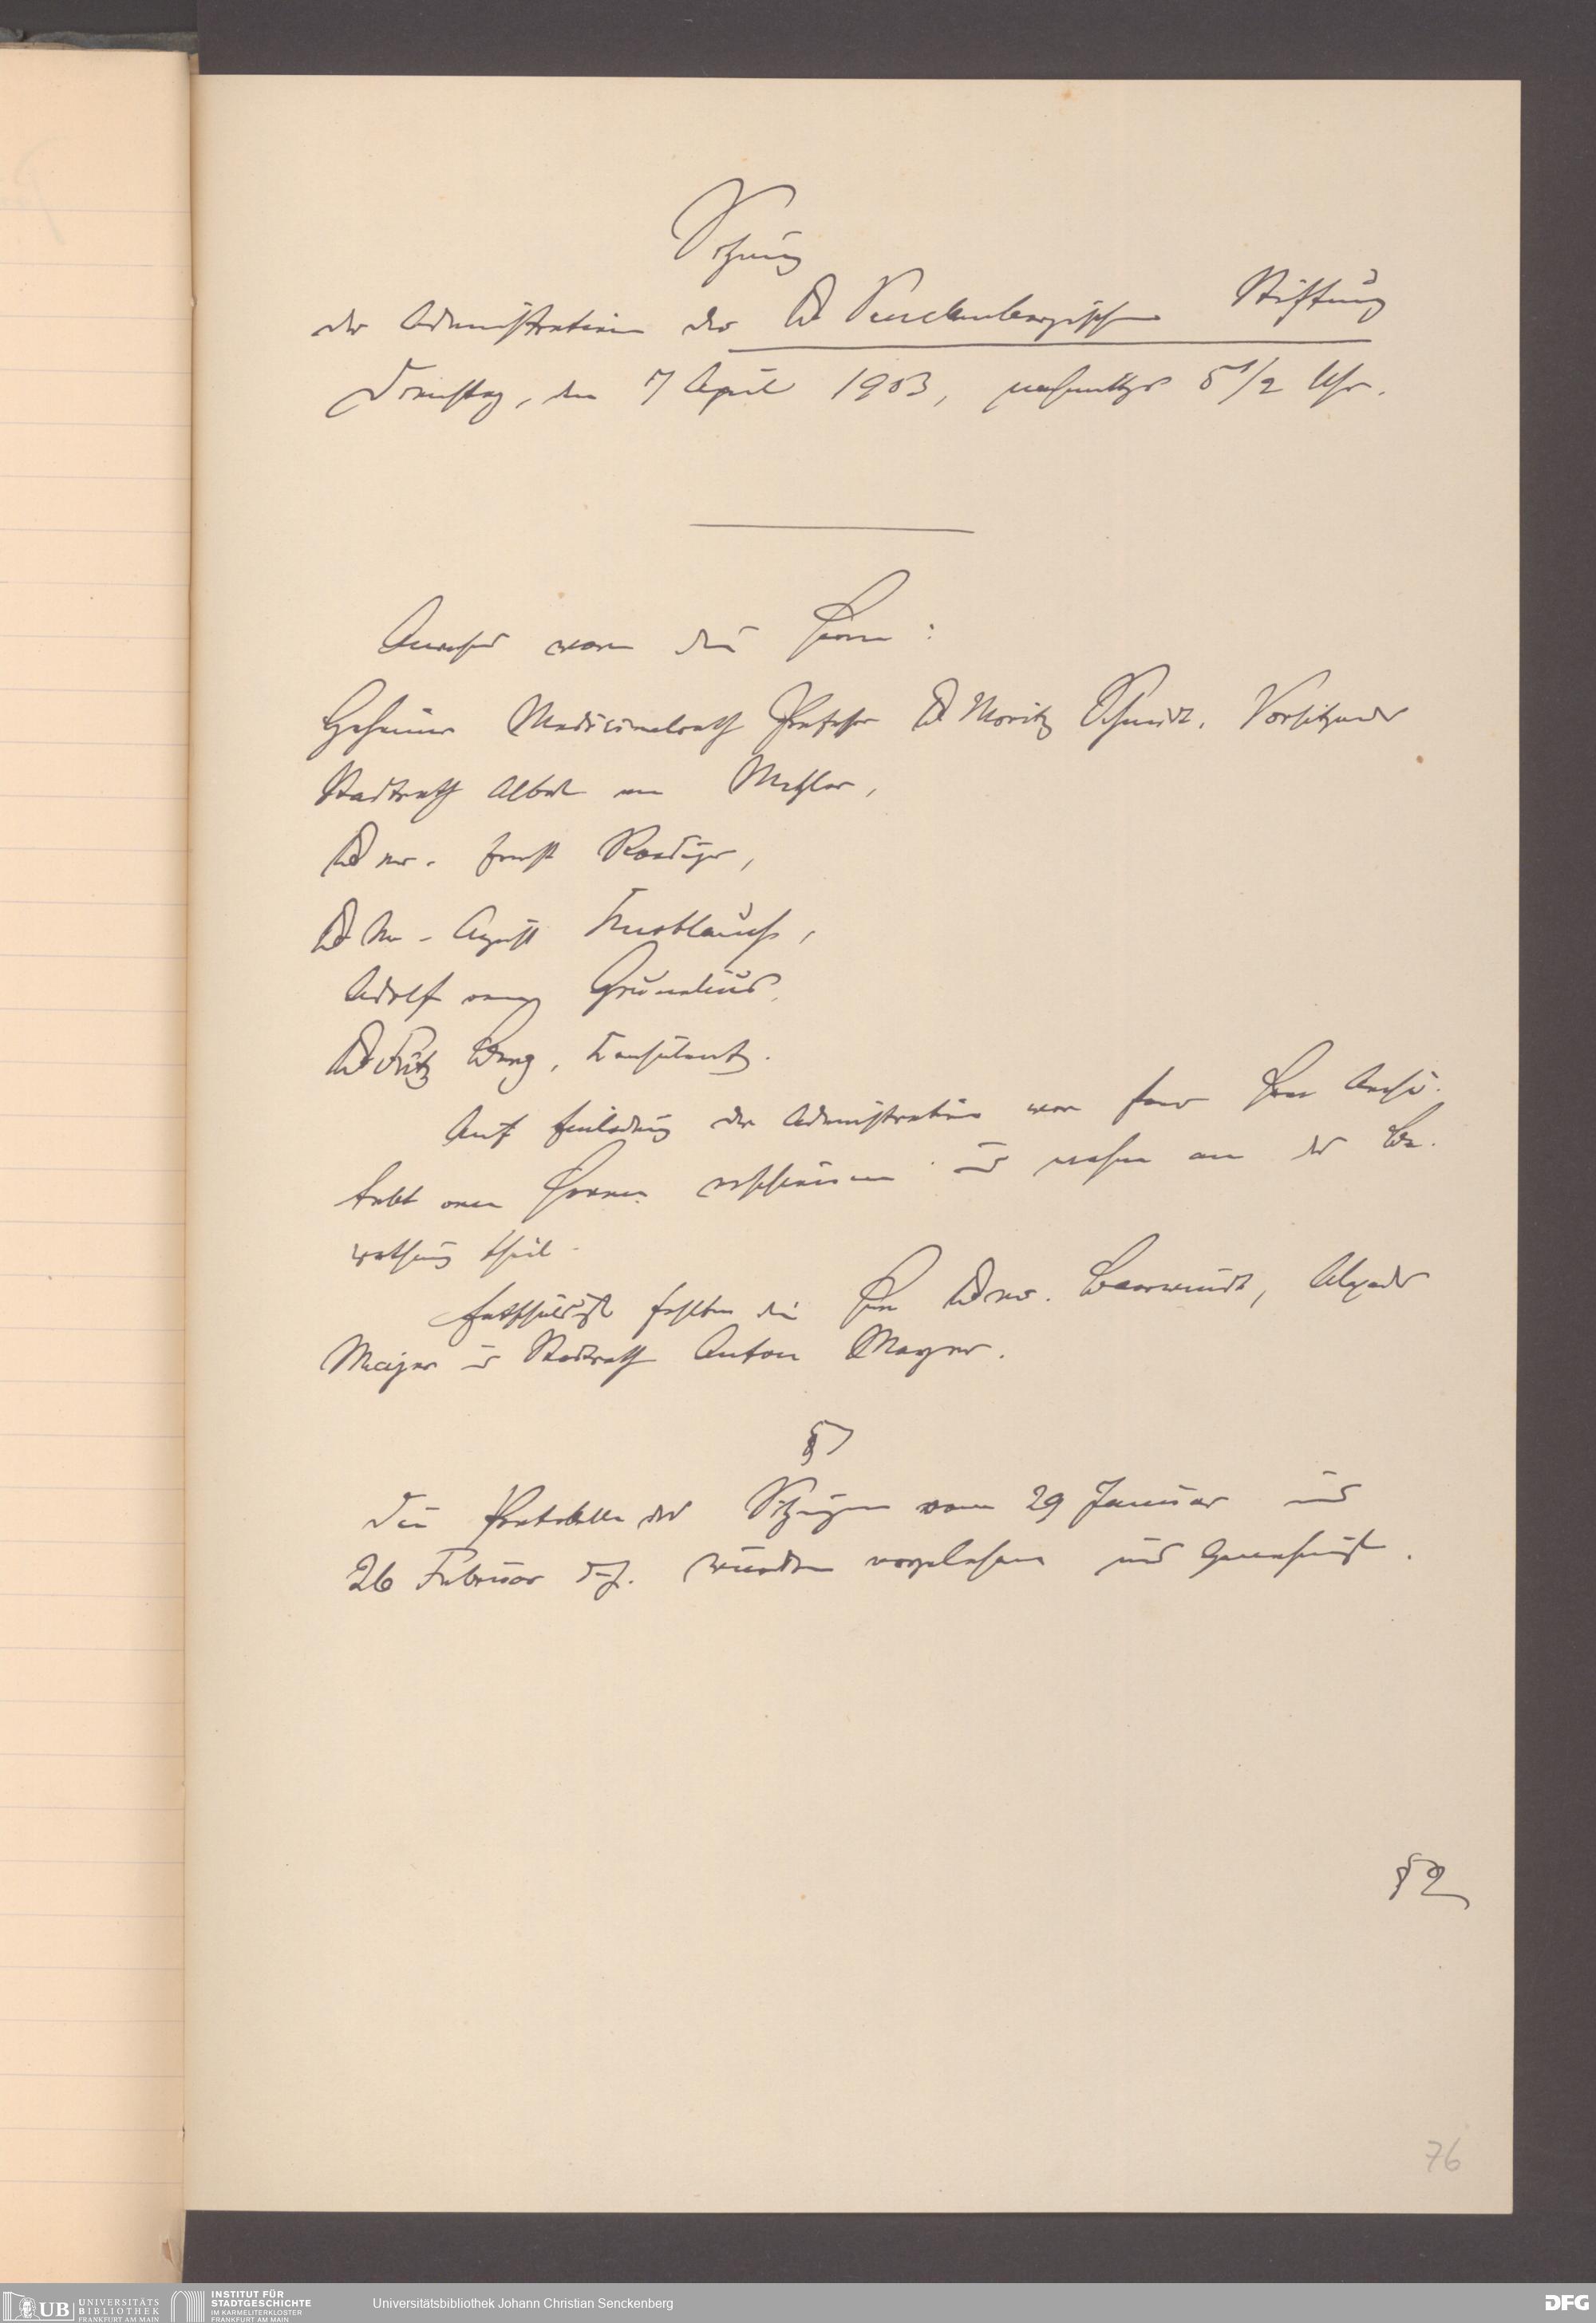 Sitzung
der Administration der Dr Senckenbergischen Stiftung
Dienstag, den 7 April 1903, nachmittags 5 1/2 Uhr.
Anwesend waren die Herren:
Geheimer Medicinalrath Professor Dr Moritz Schmidt, Vorsitzender
Stadtrath Albert von Metzler,
Dr med. Ernst Roediger,
Dr med. August Knoblauch,
Adolf von Grunelius,
Dr Fritz Berg, Konsulent.
Auf Einladung der Administration war ferner Herr Archi-
tekt von Hoven erschienen und nahm an der Be-
rathung theil.
Entschuldigt fehlten die Herren Dr med. Baerwindt, Alexander
Majer und Stadtrath Anton Meyer.
§ 1
Die Protokolle der Sitzungen vom 29 Januar und
26 Februar d. J. wurden vorgelesen und genehmigt.
§ 2
76
UB UNIVERSITÄTS
BIBLIOTHEK
FRANKFURT AM MAIN
INSTITUT FÜR
STADTGESCHICHTE
IM KARMELITERKLOSTER
FRANKFURT AM MAIN
Universitätsbibliothek Johann Christian Senckenberg
DFG